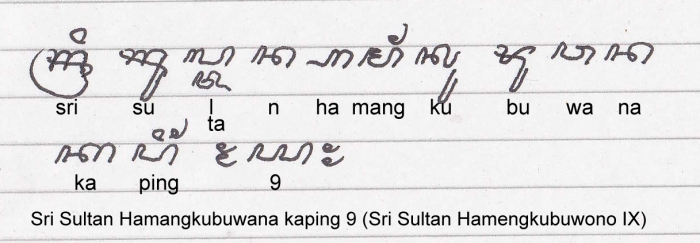 ꦱꦿꦶꦱꦸꦭ꧀ꦠꦤ꧀ꦲꦩꦁꦏꦸꦧꦸꦮꦤ
sri su l n ha mang ku bu wa na
ta
ꦏꦥꦶꦁ꧇꧙꧇
ka ping 9
Sri Sultan Hamangkubuwana kaping 9 (Sri Sultan Hamengkubuwono IX)